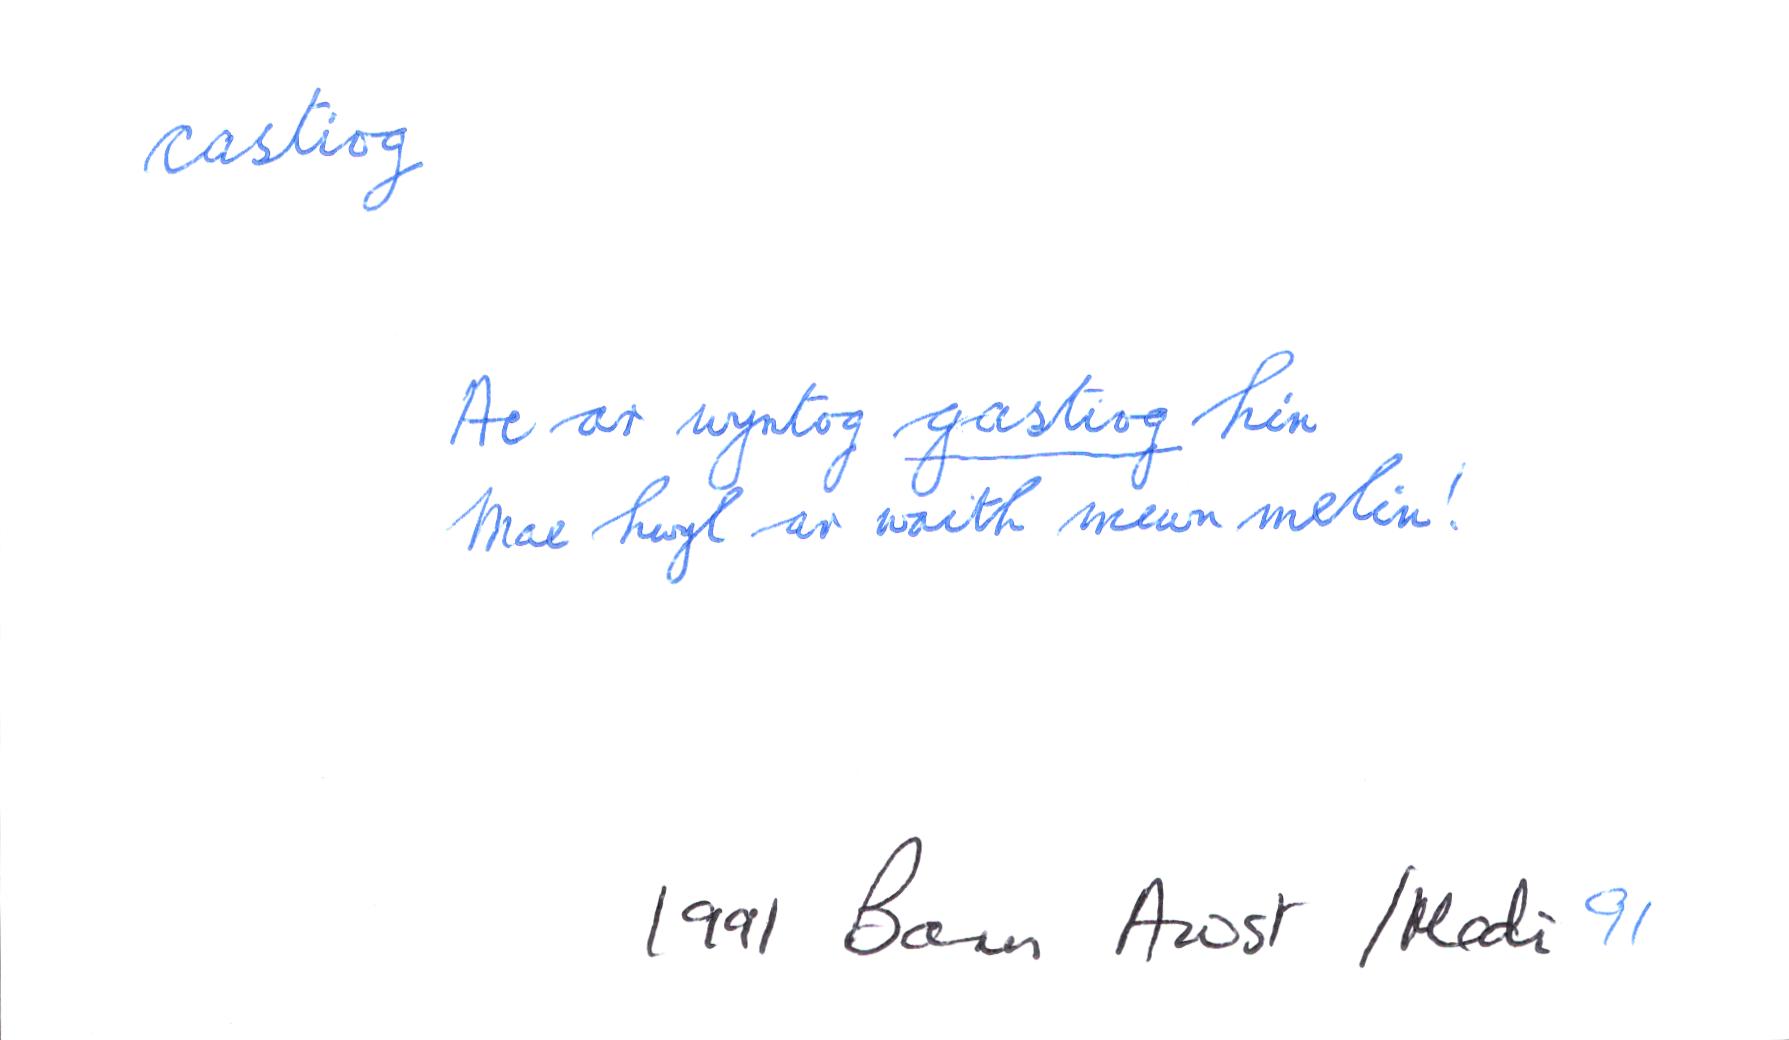 castiog
Ac ar wyntog gastiog hin
Mae hwyl ar waith mewn melin!
1991 Barn Awst /Medi 91